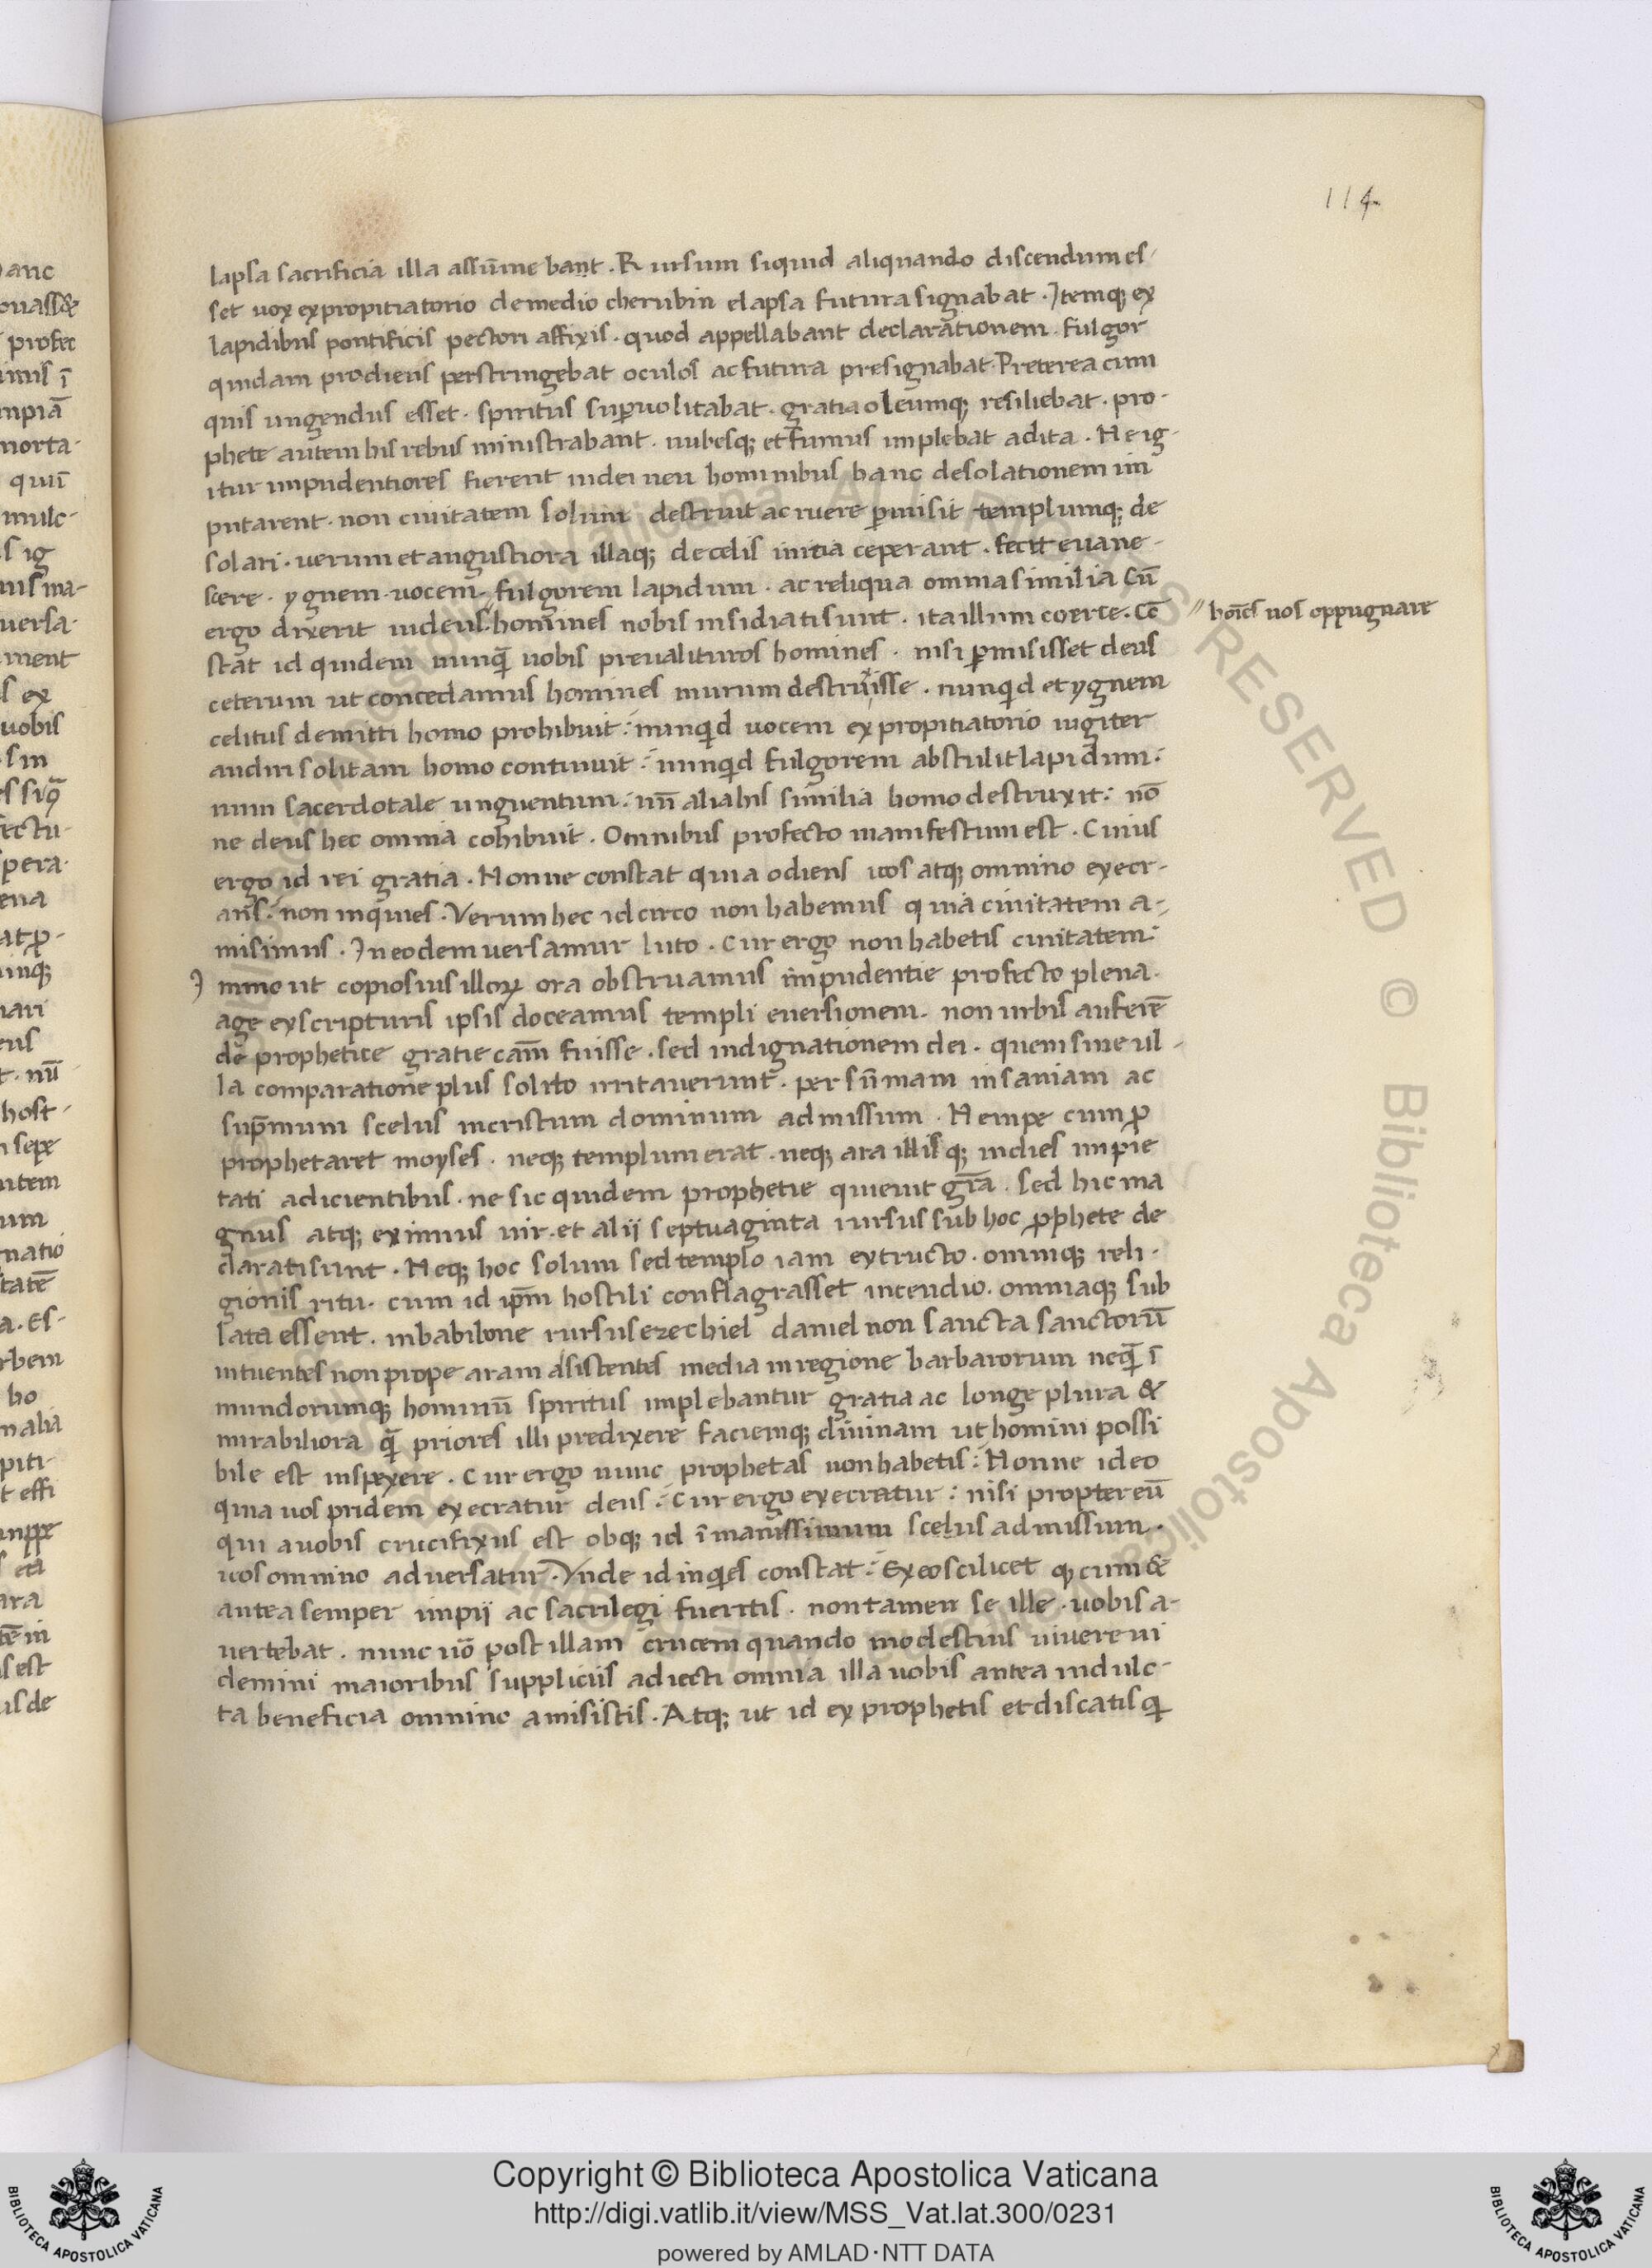 114
lapsa sacrificia illa assūmebant. Rursum siquid aliquando discendum es-
set uox ex propitiatorio de medio cherubin elapsa futura signabat. Itemq; ex
lapidibus pontificis pectori affixis. quod appellabant declarationem. fulgor
quidam prodiens perstringebat oculos ac futura presignabat. Preterea cum
quis ungendus esset. spiritus suꝑuolitabat. gratia oleumq; resiliebat. pro-
phete autem his rebus ministrabant. nubesq; et fumus implebat adita. Ne ig-
itur impudentiores fierent iudei neu hominibus hanc desolationem im
putarent. non ciuitatem solum destruit ac ruere ꝑmisit templumq; de
solari. uerum et angustiora illaq; de celis initia ceperant. fecit euane-
scere. ygnem. uocem. fulgorem lapidum. ac reliqua omnia similia Cū
ergo dixerit iudeus. homines nobis insidiati sunt. ita illum coerce. Cō
hoīes uos oppugnare
stat id quidem nunq̄ uobis preualituros homines. nisi ꝑmisisset deus
ceterum ut concedamus homines murum destruisse. nunqd et ygnem
celitus demitti homo prohibuit: nunqd uocem ex propitiatorio iugiter
audiri solitam homo continuit: nunqd fulgorem abstulit lapidum:
num sacerdotale unguentum: nū alia his similia homo destruxit: nō
ne deus hec omnia cohibuit. Omnibus profecto manifestum est. Cuius
ergo id rei gratia. Nonne constat quia odiens uos atq; omnino execr-
ans: non inquies. Verum hec idcirco non habemus quia ciuitatem a-
misimus. In eodem uersamur luto. Cur ergo non habetis ciuitatem:
Immo ut copiosius illoꝝ ora obstruamus impudentie profecto plena.
age ex scripturis ipsis doceamus templi euersionem. non urbis auferē
de prophetice gratie cām fuisse. sed indignationem dei. quem sine ul-
la comparatione plus solito irritauerunt. per sūmam insaniam ac
sup̄mum scelus in cristum dominum admissum. Nempe cum ꝓ
prophetaret moyses. neq; templum erat. neq; ara illisq; indies impie
tati adicientibus. ne sic quidem prophetie quieuit grīa. Sed hic ma
gnus atq; eximius uir. et alij septuaginta rursus sub hoc ꝓphete de
clarati sunt. Neq; hoc solum sed templo iam extructo. omniq; reli-
gionis ritu. cum id ip̄m hostili conflagrasset incendio. omniaq; sub
lata essent. in babilone rursus ezechiel daniel non sancta sanctorū
intuentes non prope aram assistentes media in regione barbarorum neq̄ ī
mundorumq; hominū spiritus implebantur gratia ac longe plura &
mirabiliora q̄ priores illi predixere faciemq; diuinam ut homini possi
bile est inspexere. Cur ergo nunc prophetas non habetis: Nonne ideo
quia uos pridem execratur deus: Cur ergo execratur: nisi propter eū
qui a uobis crucifixus est obq; id īmanissimum scelus admissum.
uos omnino aduersatur. Vnde id inqes constat: Ex eo scilicet q cum &
antea semper impij ac sacrilegi fueritis. non tamen se ille. uobis a-
uertebat. nunc uō post illam crucem quando modestius uiuere ui
demini maioribus suppliciis adiecti omnia illa uobis antea indulc-
ta beneficia omnino amisistis. Atq; ut id ex prophetis et discatis q
Copyright © Biblioteca Apostolica Vaticana
http://digi.vatlib.it/view/MSS_Vat.lat.300/0231
powered by AMLAD·NTT DATA
BIBLIOTECA APOSTOLICA VATICANA
BIBLIOTECA APOSTOLICA VATICANA